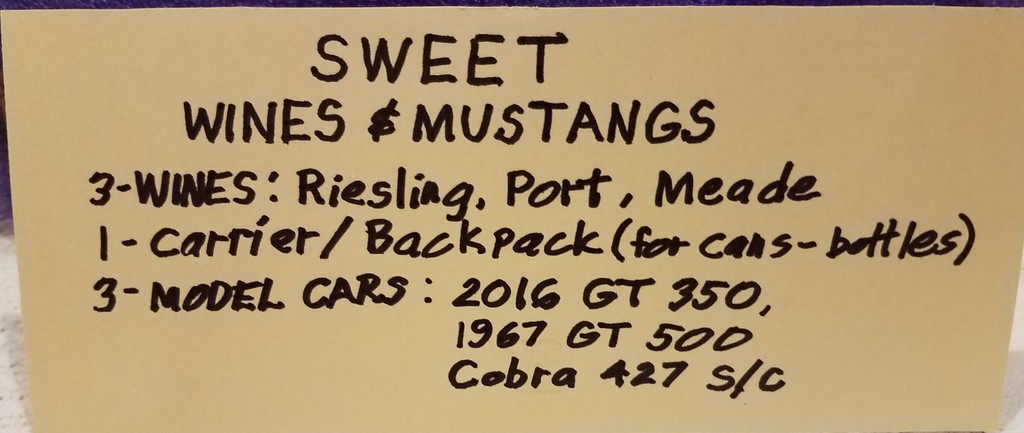 SWEET
WINES & MUSTANGS
3-WINES: Riesling, Port, Meade
1-Carrier/Backpack (for cans-bottles)
3-MODEL CARS: 2016 GT 350,
1967 GT 500
Cobra 427 S/C